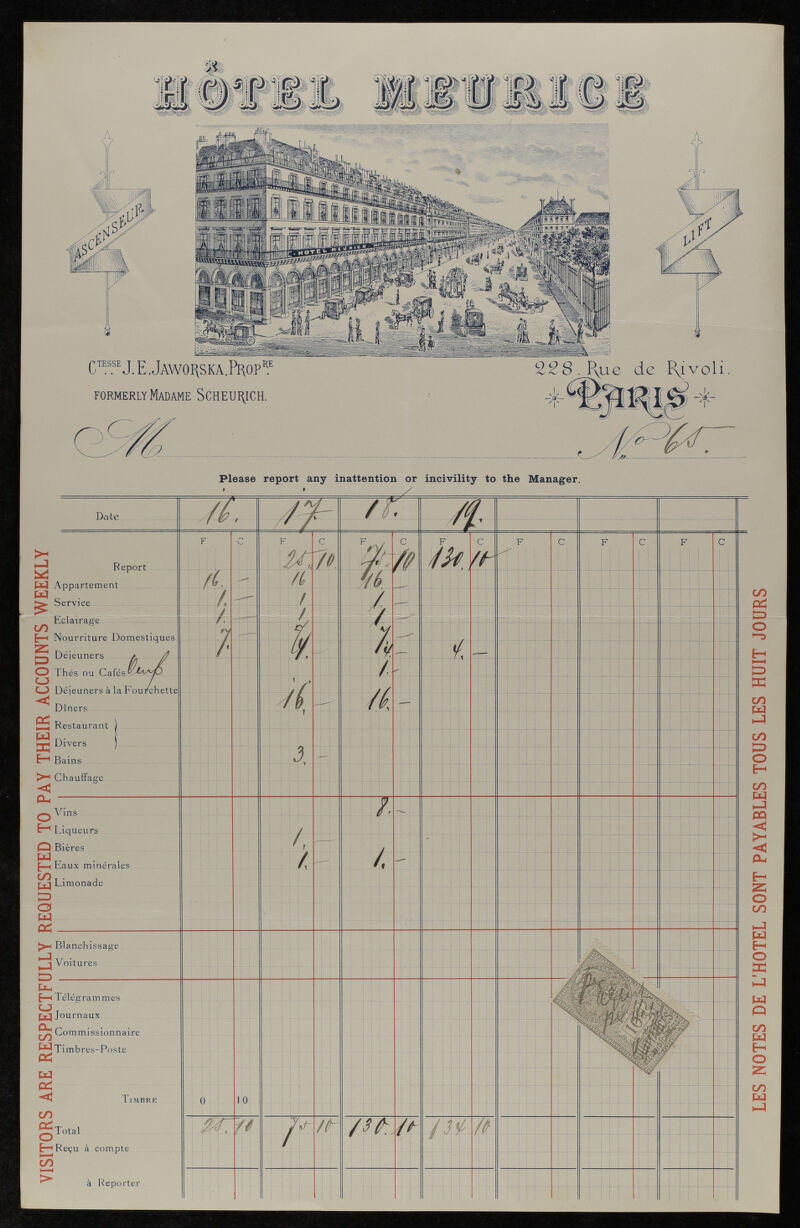 HÔTEL MEURICE
ASCENSEUR
HOTEL MEURICE
LIFT
CTESSE J.E. JAWORSKA, PROPRE
FORMERLY MADAME SCHEURICH.
228. Rue de Rivoli.
PARIS
M
No 65.
Please report any inattention or incivility to the Manager.
VISITORS ARE RESPECTFULLY REQUESTED TO PAY THEIR ACCOUNTS WEEKLY
LES NOTES DE L'HOTEL SONT PAYABLES TOUS LES HUIT JOURS
Date 16. 17 18. 19.
F C F C F C F C F C F C F C
Report 25, 10. 75. 10 130. 10
Appartement 16. — 16 — 16 —
Service 1. — 1 1. —
Eclairage 1. — 1. 1. —
Nourriture Domestiques 7. — 7. —
Déjeuners 4. — 4. —
Thés ou Cafés 1. -
Déjeuners à la Fourchette
Dîners 16, — 16, —
Restaurant
Divers
Bains 3, —
Chauffage
Vins 8. —
Liqueurs
Bières 1, —
Eaux minérales 1. — 1. —
Limonade
Blanchissage
Voitures
Télégrammes
Journaux
Commissionnaire
Timbres-Poste
TIMBRE 0 10
Total 25. 10 75 10 130. 10 134 10
Reçu à compte
à Reporter